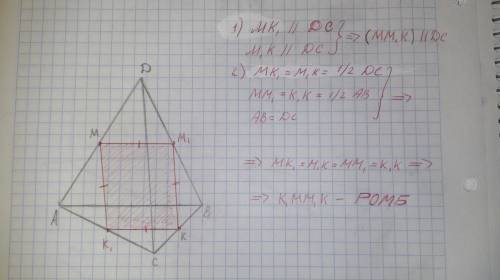 D
M
M₁
A
B
K₁
K
C
1) MK₁ // DC
M₁K // DC } ⇒ (MM₁K) // DC
2) MK₁ = M₁K = 1/2 DC
MM₁ = K₁K = 1/2 AB } ⇒
AB = DC
⇒ MK₁ = M₁K = MM₁ = K₁K ⇒
⇒ K₁MM₁K - РОМБ